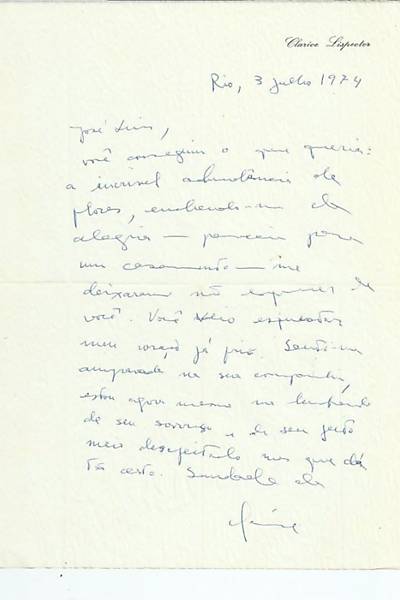 Clarice Lispector
Rio, 3 julho 1974
José Luis,
você conseguiu o que queria:
a incrível abundância de
flores, enchendo-me de
alegria — pareciam para
um casamento — me
deixaram não esquecer de
você. Você veio esquentar
meu coração já frio. Senti-me
amparada na sua companhia,
estou agora mesmo me lembrando
de seu sorriso e de seu jeito
meio desajeitado mas que dá
tá certo. Saudade da
Clarice